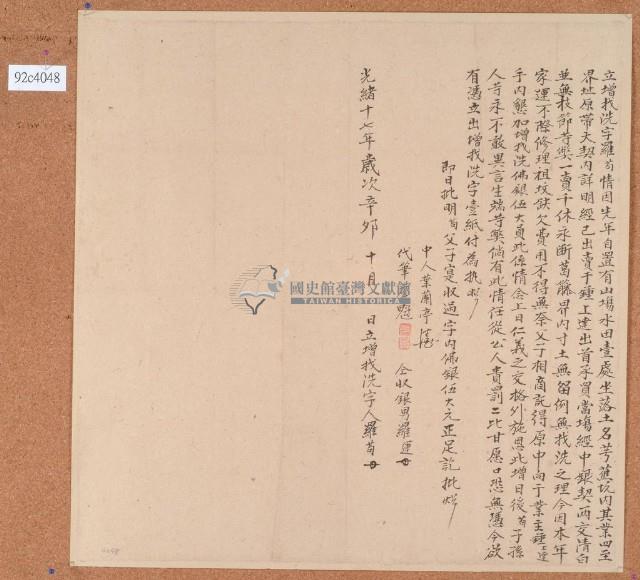 立增找洗字羅苟情因先年自置有山塲水田壹處坐落土名芎蕉坑內其業四至
界址原帶大契內詳明經已出賣于鍾上達出首承買當塲經中銀契两交清白
並無枝節等獘一賣千休永断葛籐界內寸土無留例無找洗之理今因本年
家運不際修理祖坟缺欠費用不得無奈父子相商託得原中向于業主鍾上達
手內懇加增找洗佛銀伍大員此係情念上日仁義之交格外施恩此增日後苟子孫
人等永不敢異言生端等獘倘有此情任從公人責罰二比甘愿口恐無憑今欲
有憑立出增找洗字壹紙付為执炤
即日批明苟父子寔收過字內佛銀伍大元正足訖批炤
中人葉蘭亭
代筆 魁
仝收銀男羅運
光緒十七年歲次辛卯十月 日立增找洗字人羅苟
92c4048
國史館臺灣文獻館
TAIWAN HISTORICA